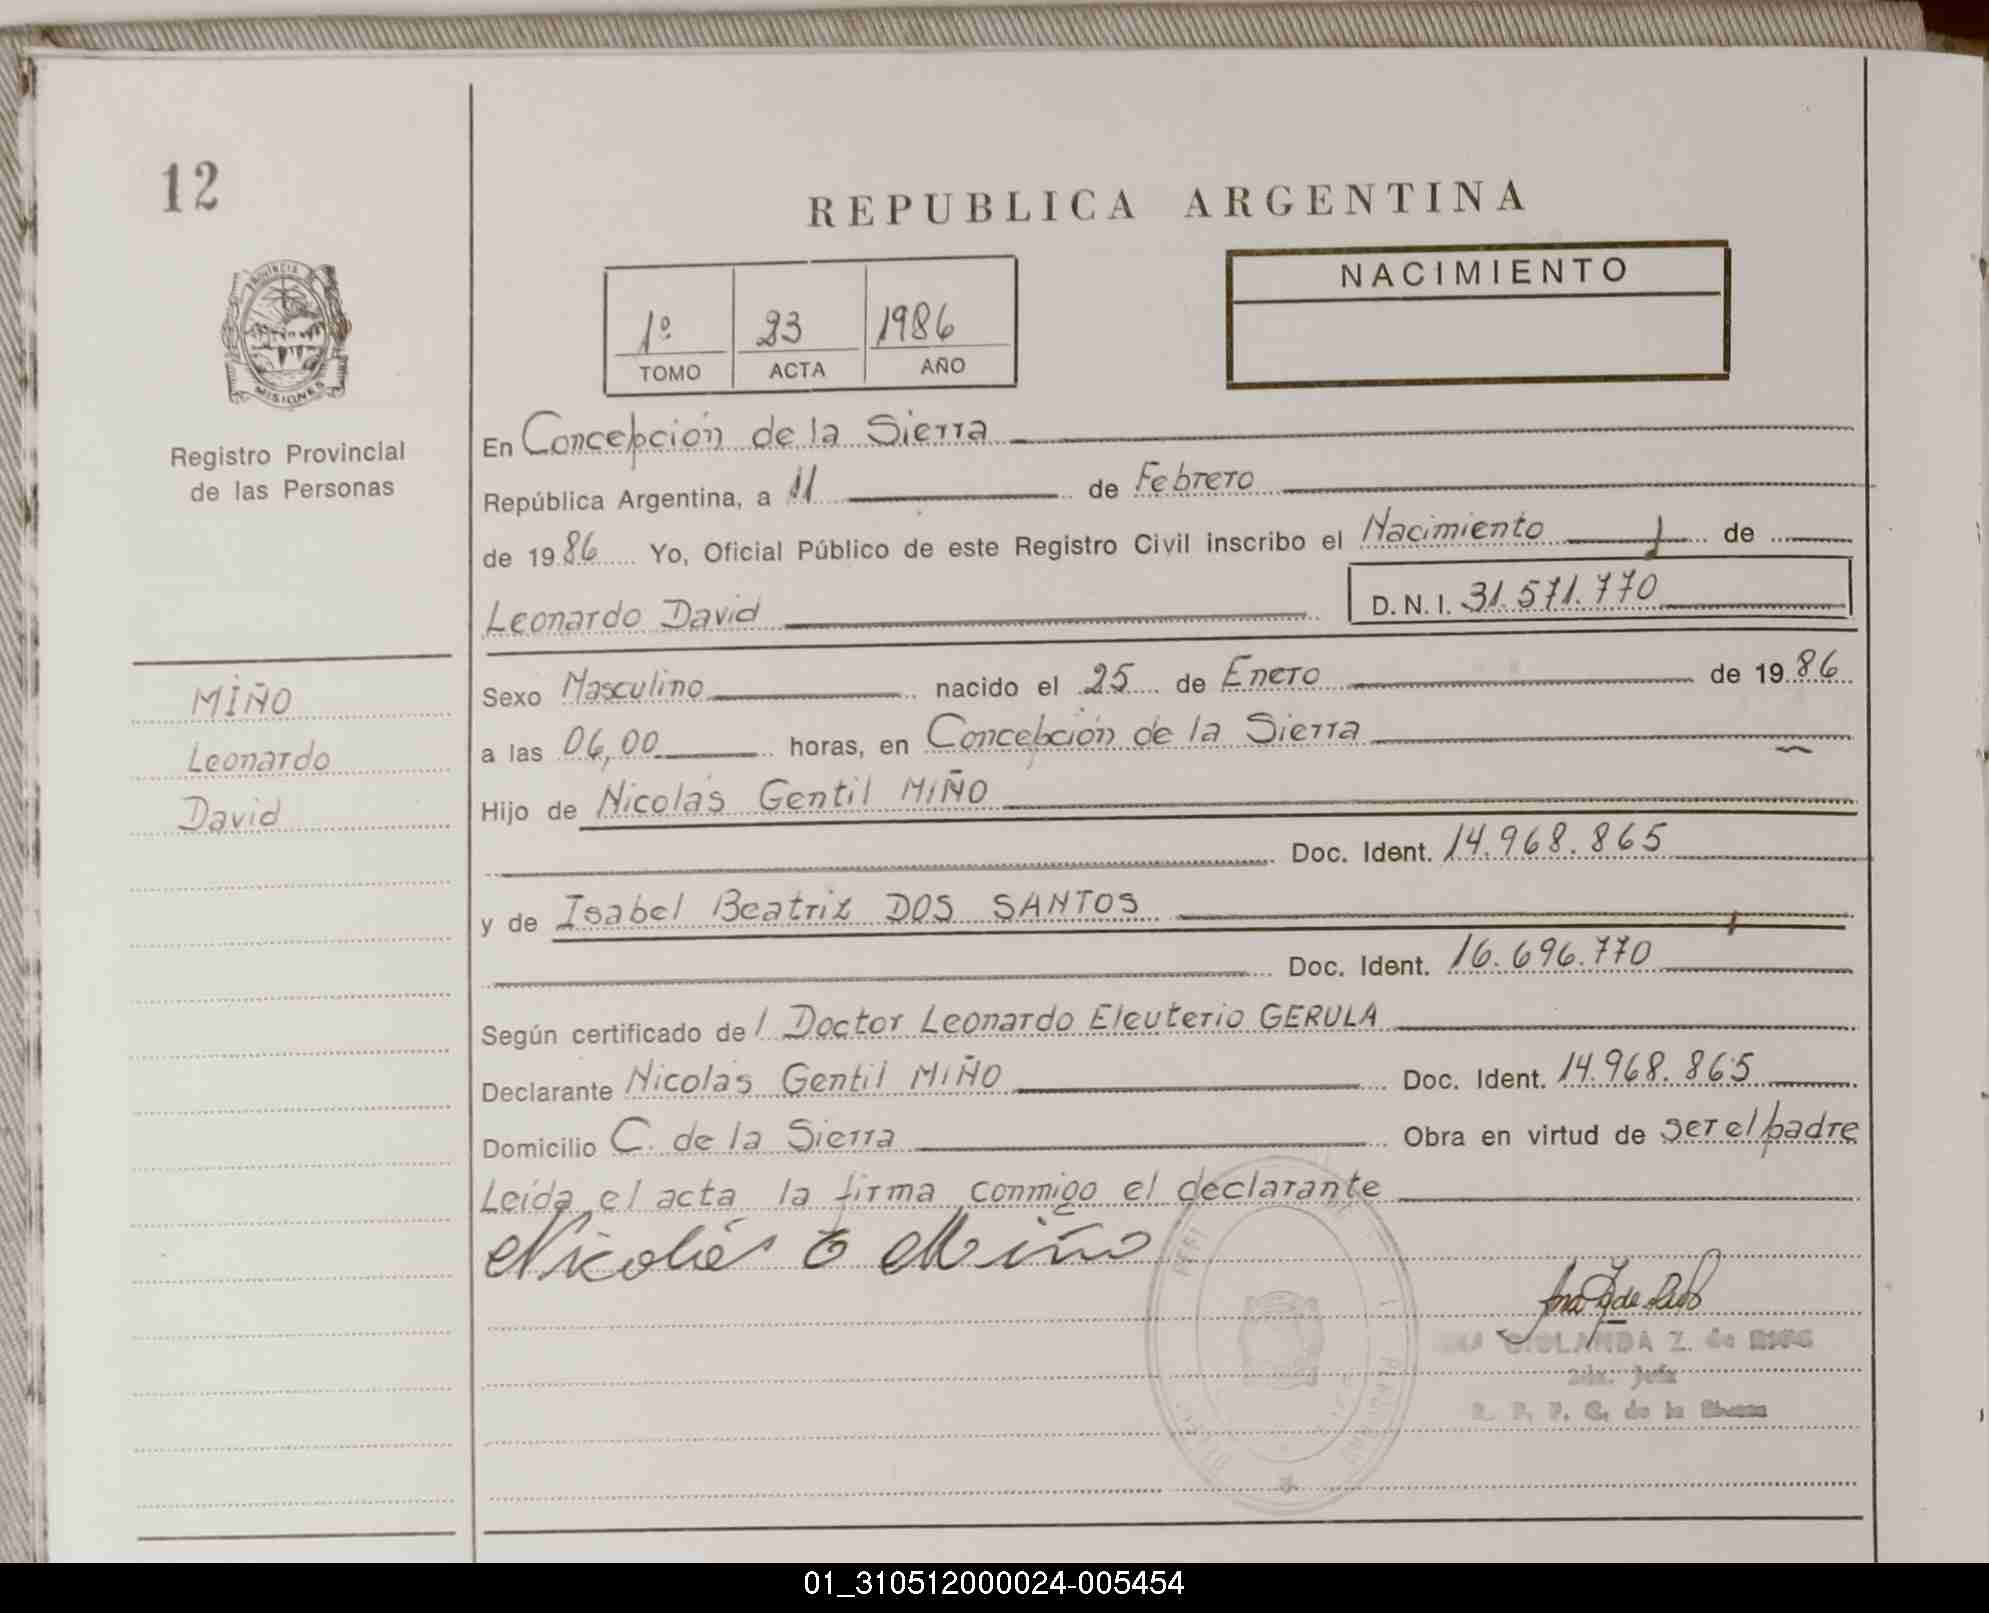 12
REPUBLICA ARGENTINA
PROVINCIA
MISIONES
Registro Provincial
de las Personas
1º 23 1986
TOMO ACTA AÑO
NACIMIENTO
En Concepción de la Sierra
República Argentina, a 11 de Febrero
de 1986 Yo, Oficial Público de este Registro Civil inscribo el Nacimiento de
Leonardo David D. N. I. 31.571.770
MIÑO
Leonardo
David
Sexo Masculino nacido el 25 de Enero de 1986
a las 06,00 horas, en Concepción de la Sierra
Hijo de Nicolás Gentil MIÑO
Doc. Ident. 14.968.865
y de Isabel Beatriz DOS SANTOS
Doc. Ident. 16.696.770
Según certificado del Doctor Leonardo Eleuterio GERULA
Declarante Nicolás Gentil MIÑO Doc. Ident. 14.968.865
Domicilio C. de la Sierra Obra en virtud de ser el padre
Leída el acta la firma conmigo el declarante
Nicolás G Miño
Z. de
R. P. P. C. de la Sierra
01_310512000024-005454